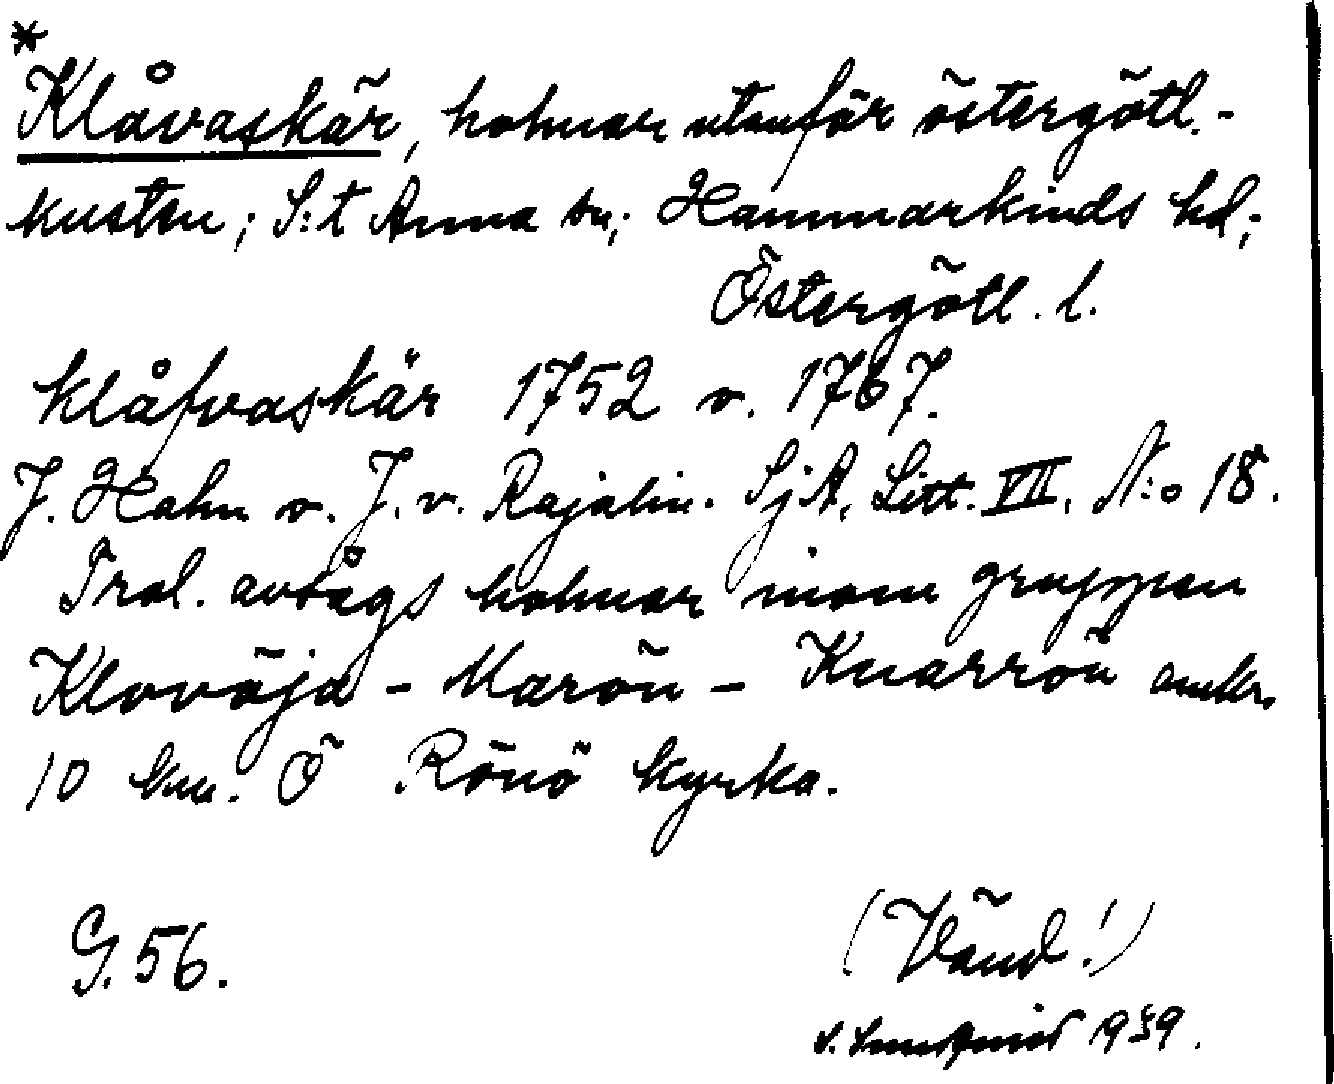 *
Klåvaskär, holmar utanför östergötl.-
kusten; S:t Anna sn; Hammarkinds hd;
Östergötl. l.
Klåfvaskär 1752 o. 1767.
J. Hahn o. J. v. Rajalin. SjA. Litt. VII. N:o 18.
Trol. avsågs holmar inom gruppen
Klovöja - Marön - Knarrön omkr.
10 km. Ö Rönö kyrka.
G. 56.
(Vänd!)
1939.